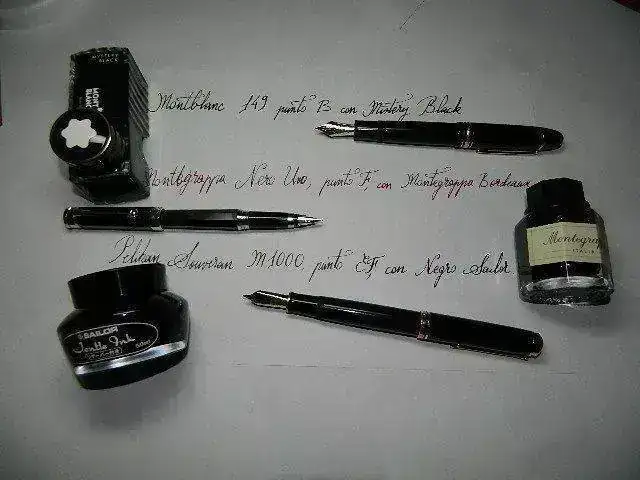 MYSTERY BLACK
MONT
BLANC
Montblanc 149 punto B con Mistery Black
Montegrappa Nero Uno, punto F, con Montegrappa Bordeaux
Montegrap
Pelikan Souveran M1000, punto EF, con Negro Sailor
SAILOR
Jentle Ink
50ml